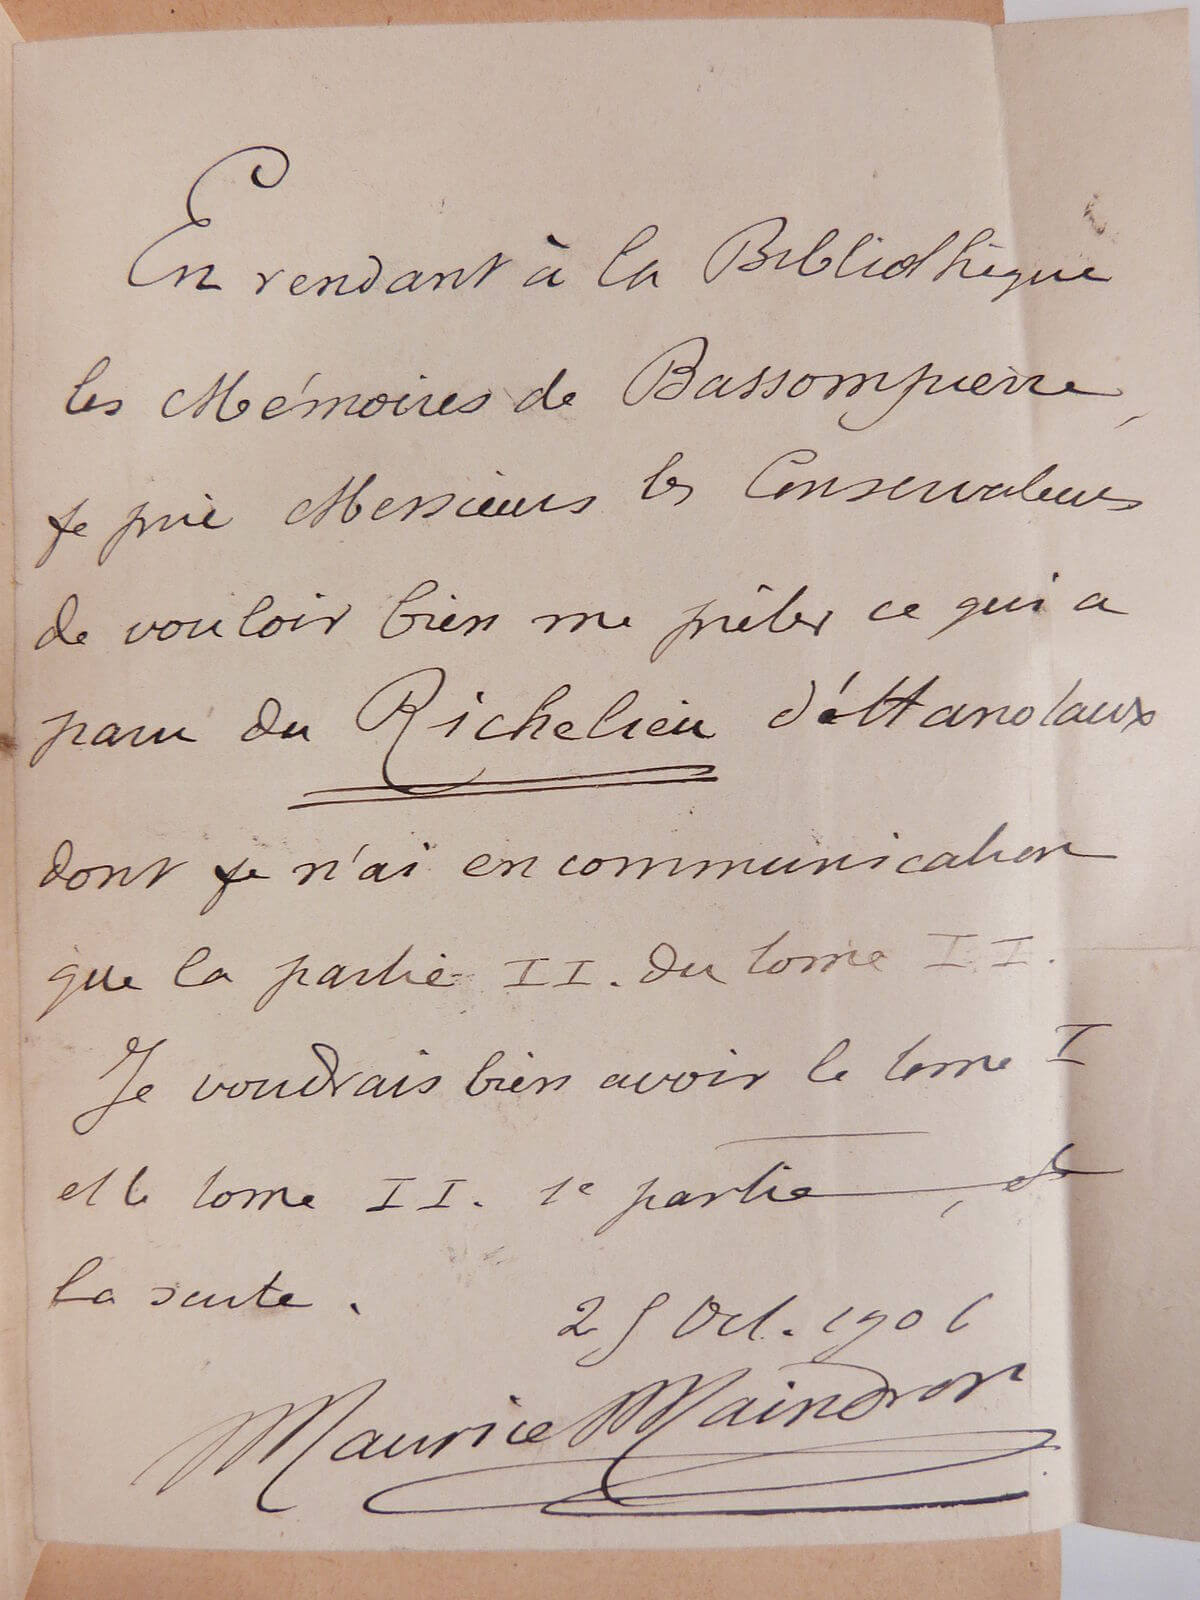 En rendant à la Bibliothèque
les Mémoires de Bassompierre,
je prie Messieurs les Conservateurs
de vouloir bien me prêter ce qui a
paru du Richelieu d'Hanotaux
dont je n'ai en communication
que la partie II. du tome II.
Je voudrais bien avoir le tome I
et le tome II. 1e partie, et
la suite.
25 Oct. 1906
Maurice Maindron